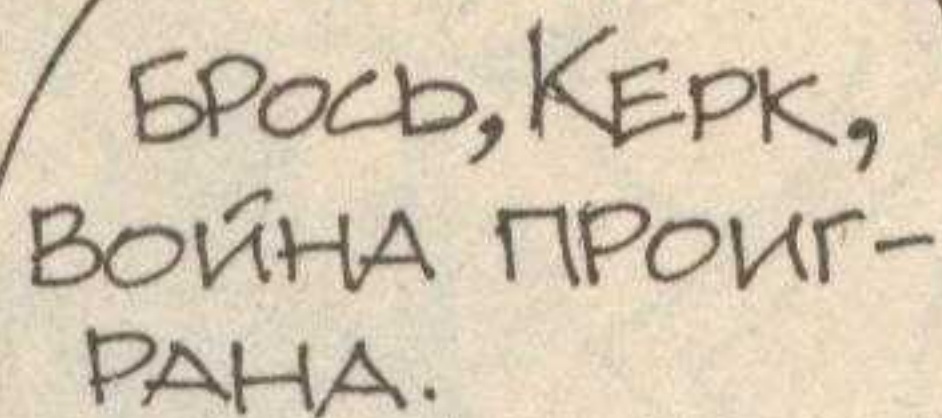 БРОСЬ, КЕРК,
ВОЙНА ПРОИГ-
РАНА.